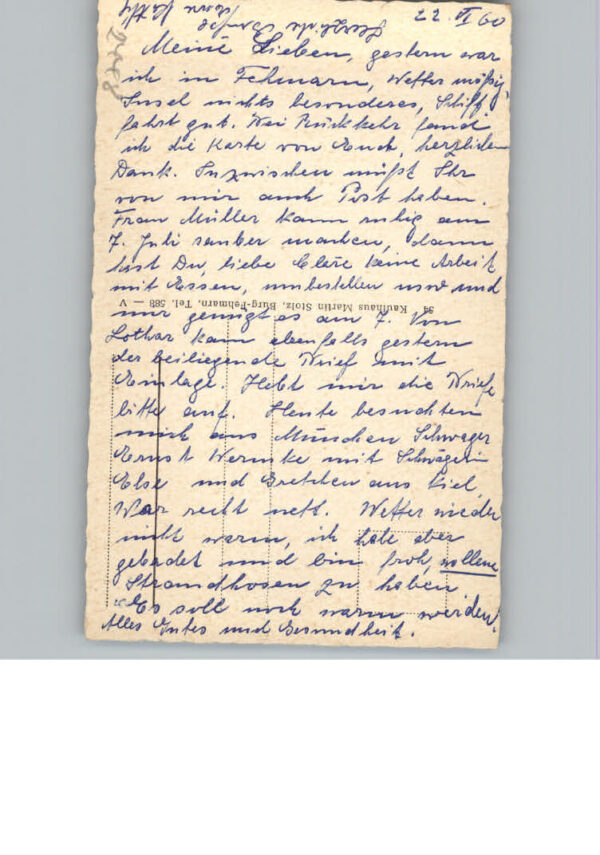 22. VI 60
Meine Lieben, gestern war
ich in Fehmarn, Wetter mäßig
Insel nichts besonderes, Schiff
fahrt gut. Bei Rückkehr fand
ich die Karte von Euch, herzlichen
Dank. Inzwischen müßt Ihr
von mir auch Post haben.
Frau Müller kann ruhig am
7. Juli sauber machen, dann
hast Du, liebe Cläre keine Arbeit
mit Essen, umbestellen usw und
94 Kaufhaus Martin Stolz, Burg-Fehmarn, Tel. 588 — V
mir genügt es am 7. Von
Lothar kam ebenfalls gestern
der beiliegende Brief mit
Einlage. Hebt mir die Briefe
bitte auf. Heute besuchten
mich aus München Schwager
Ernst Wernike mit Schwägerin
Else und Gretchen aus Kiel,
War recht nett. Wetter wieder
nicht warm, ich habe aber
gebadet und bin froh, wollene
Strandhosen zu haben
Es soll noch warm werden!
Alles Gutes und Gesundheit.
Herzlichste